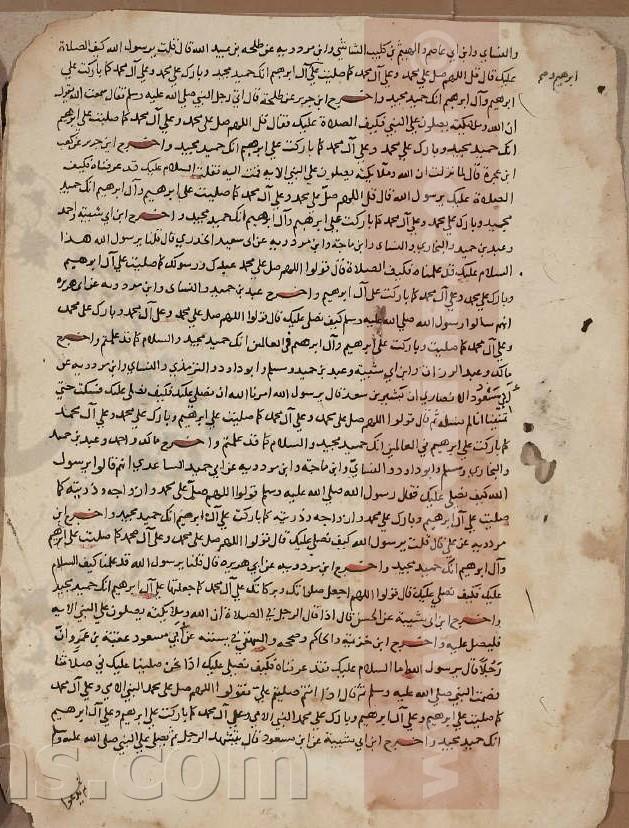 والنسائي وابن أبي عاصم والهيثم بن كليب الشاشي وابن مردويه عن طلحة بن عبيد الله قال قلت يرسول الله كيف الصلاة
عليك قال قل اللهم صل على محمد وعلى آل محمد كما صليت على آل ابرهيم انك حميد مجيد وبارك على محمد وعلى آل محمد كما باركت على
ابرهيم وآل ابرهيم انك حميد مجيد واخرج ابن جرير عن طلحة قال اتى رجل النبي صلى الله عليه وسلم فقال سمعت الله يقول
ان الله وملائكته يصلون على النبي فكيف الصلاة عليك فقال قل اللهم صل على محمد وعلى آل محمد كما صليت على ابرهيم
انك حميد مجيد وبارك على محمد وعلى آل محمد كما باركت على ابرهيم انك حميد مجيد واخرج ابن جرير عن كعب
ابن عجرة قال لما نزلت ان الله وملائكته يصلون على النبي الاية قمت اليه فقلت السلام عليك قد عرفناه فكيف
الصلاة عليك يرسول الله قال قل اللهم صل على محمد وعلى آل محمد كما صليت على ابرهيم وآل ابرهيم انك حميد
مجيد وبارك على محمد وعلى آل محمد كما باركت على ابرهيم وآل ابرهيم انك حميد مجيد واخرج ابن ابي شيبة واحمد
وعبد بن حميد والبخاري والنسائي وابن ماجة وابن مردويه عن ابي سعيد الخدري قال قلنا يرسول الله هذا
السلام عليك قد علمناه فكيف الصلاة قال قولوا اللهم صل على محمد عبدك ورسولك كما صليت على آل ابرهيم
وبارك على محمد وعلى آل محمد كما باركت على آل ابرهيم واخرج عبد بن حميد والنسائي وابن مردويه عن ابي هريرة
انهم سالوا رسول الله صلى الله عليه وسلم كيف نصلي عليك قال قولوا اللهم صل على محمد وعلى آل محمد وبارك على محمد
وعلى آل محمد كما صليت وباركت على ابرهيم وآل ابرهيم في العالمين انك حميد مجيد والسلام كما قد علمتم واخرج
مالك وعبد الرزاق وابن ابي شيبة وعبد بن حميد ومسلم وابو داود والترمذي والنسائي وابن مردويه عن
ابي مسعود الانصاري ان بشير بن سعد قال يرسول الله امرنا الله ان نصلي عليك فكيف نصلي عليك فسكت حتى
تمنينا انا لم نسئله ثم قال قولوا اللهم صل على محمد وعلى آل محمد كما صليت على ابرهيم وبارك على محمد وعلى آل محمد
كما باركت على ابرهيم في العالمين انك حميد مجيد والسلام كما قد علمتم واخرج مالك واحمد وعبد بن حميد
والبخاري ومسلم وابو داود والنسائي وابن ماجة وابن مردويه عن ابي حميد الساعدي انهم قالوا يرسول
الله كيف نصلي عليك فقال رسول الله صلى الله عليه وسلم قولوا اللهم صل على محمد وازواجه وذريته كما
صليت على آل ابرهيم وبارك على محمد وازواجه وذريته كما باركت على آل ابرهيم انك حميد مجيد واخرج ابن
مردويه عن علي قال قلت يرسول الله كيف نصلي عليك قال قولوا اللهم صل على محمد وعلى آل محمد كما صليت على ابرهيم
وآل ابرهيم انك حميد مجيد واخرج ابن مردويه عن ابي هريره قال قلنا يرسول الله قد علمنا كيف السلام
عليك فكيف نصلي عليك قال قولوا اللهم اجعل صلواتك وبركاتك على آل محمد كما جعلتها على آل ابرهيم انك حميد مجيد
واخرج ابن ابي شيبة عن الحسن قال اذا قال الرجل في الصلاة ان الله وملائكته يصلون على النبي الاية
فليصل عليه واخرج ابن خزيمة والحاكم وصححه والبيهقي في سننه عن ابي مسعود عقبة بن عمرو ان
رجلا قال يرسول الله اما السلام عليك فقد عرفناه فكيف نصلي عليك اذا نحن صلينا عليك في صلاتنا
فصمت النبي صلى الله عليه وسلم ثم قال اذا انتم صليتم علي فقولوا اللهم صل على محمد النبي الامي وعلى آل محمد
كما صليت على ابرهيم وعلى آل ابرهيم وبارك على محمد النبي الامي وعلى آل محمد كما باركت على ابرهيم وعلى آل ابرهيم
انك حميد مجيد واخرج ابن ابي شيبة عن ابن مسعود قال يتشهد الرجل ثم يصلي على النبي صلى الله عليه وسلم
ثم يدعوا
ns.com